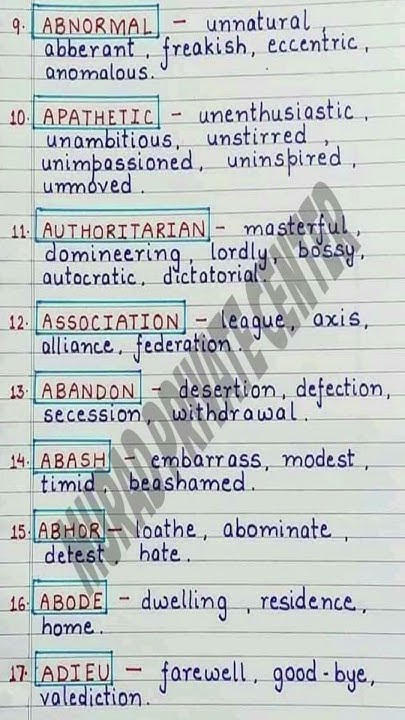 9. ABNORMAL - unnatural,
abberant, freakish, eccentric,
anomalous.
10. APATHETIC - unenthusiastic,
unambitious, unstirred,
unimpassioned, uninspired,
unmoved.
11. AUTHORITARIAN - masterful,
domineering, lordly, bossy,
autocratic, dictatorial.
12. ASSOCIATION - league, axis,
alliance, federation.
13. ABANDON - desertion, defection,
secession, withdrawal.
14. ABASH - embarrass, modest,
timid, beashamed.
15. ABHOR - loathe, abominate,
detest, hate.
16. ABODE - dwelling, residence,
home.
17. ADIEU - farewell, good-bye,
valediction.
PRIVATE CENTER